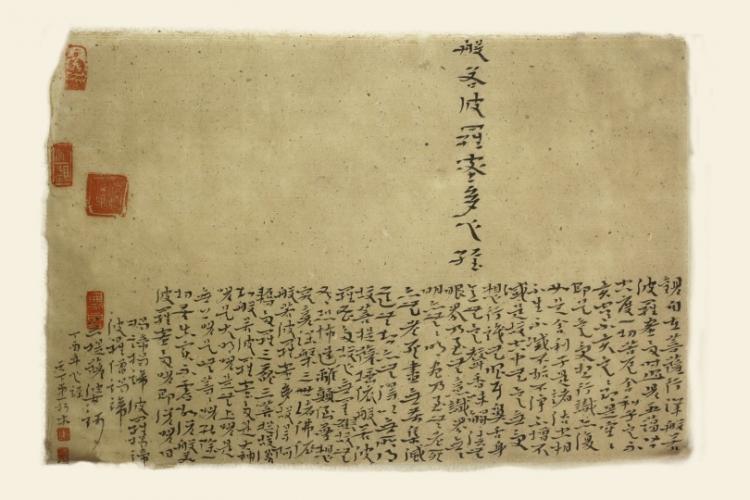 般若波羅蜜多心經
觀自在菩薩行深般若
波羅蜜多時照見五蘊皆
空度一切苦厄舍利子色不
異空空不異色色即是空空
即是色受想行識亦復
如是舍利子是諸法空相
不生不滅不垢不淨不增不
減是故空中無色無受
想行識無眼耳鼻舌身
意無色聲香味觸法無
眼界乃至無意識界無
無明亦無無明盡乃至無老死
亦無老死盡無苦集滅
道無智亦無得以無所得
故菩提薩埵依般若波
羅蜜多故心無罣礙無罣礙故
無有恐怖遠離顛倒夢想
究竟涅槃三世諸佛依
般若波羅蜜多故得阿
耨多羅三藐三菩提故
知般若波羅蜜多是大神
咒是大明咒是無上咒是
無等等咒能除一
切苦真實不虛故說般若
波羅蜜多咒即說咒曰
揭諦揭諦 波羅揭諦
波羅僧揭諦
菩提薩婆訶